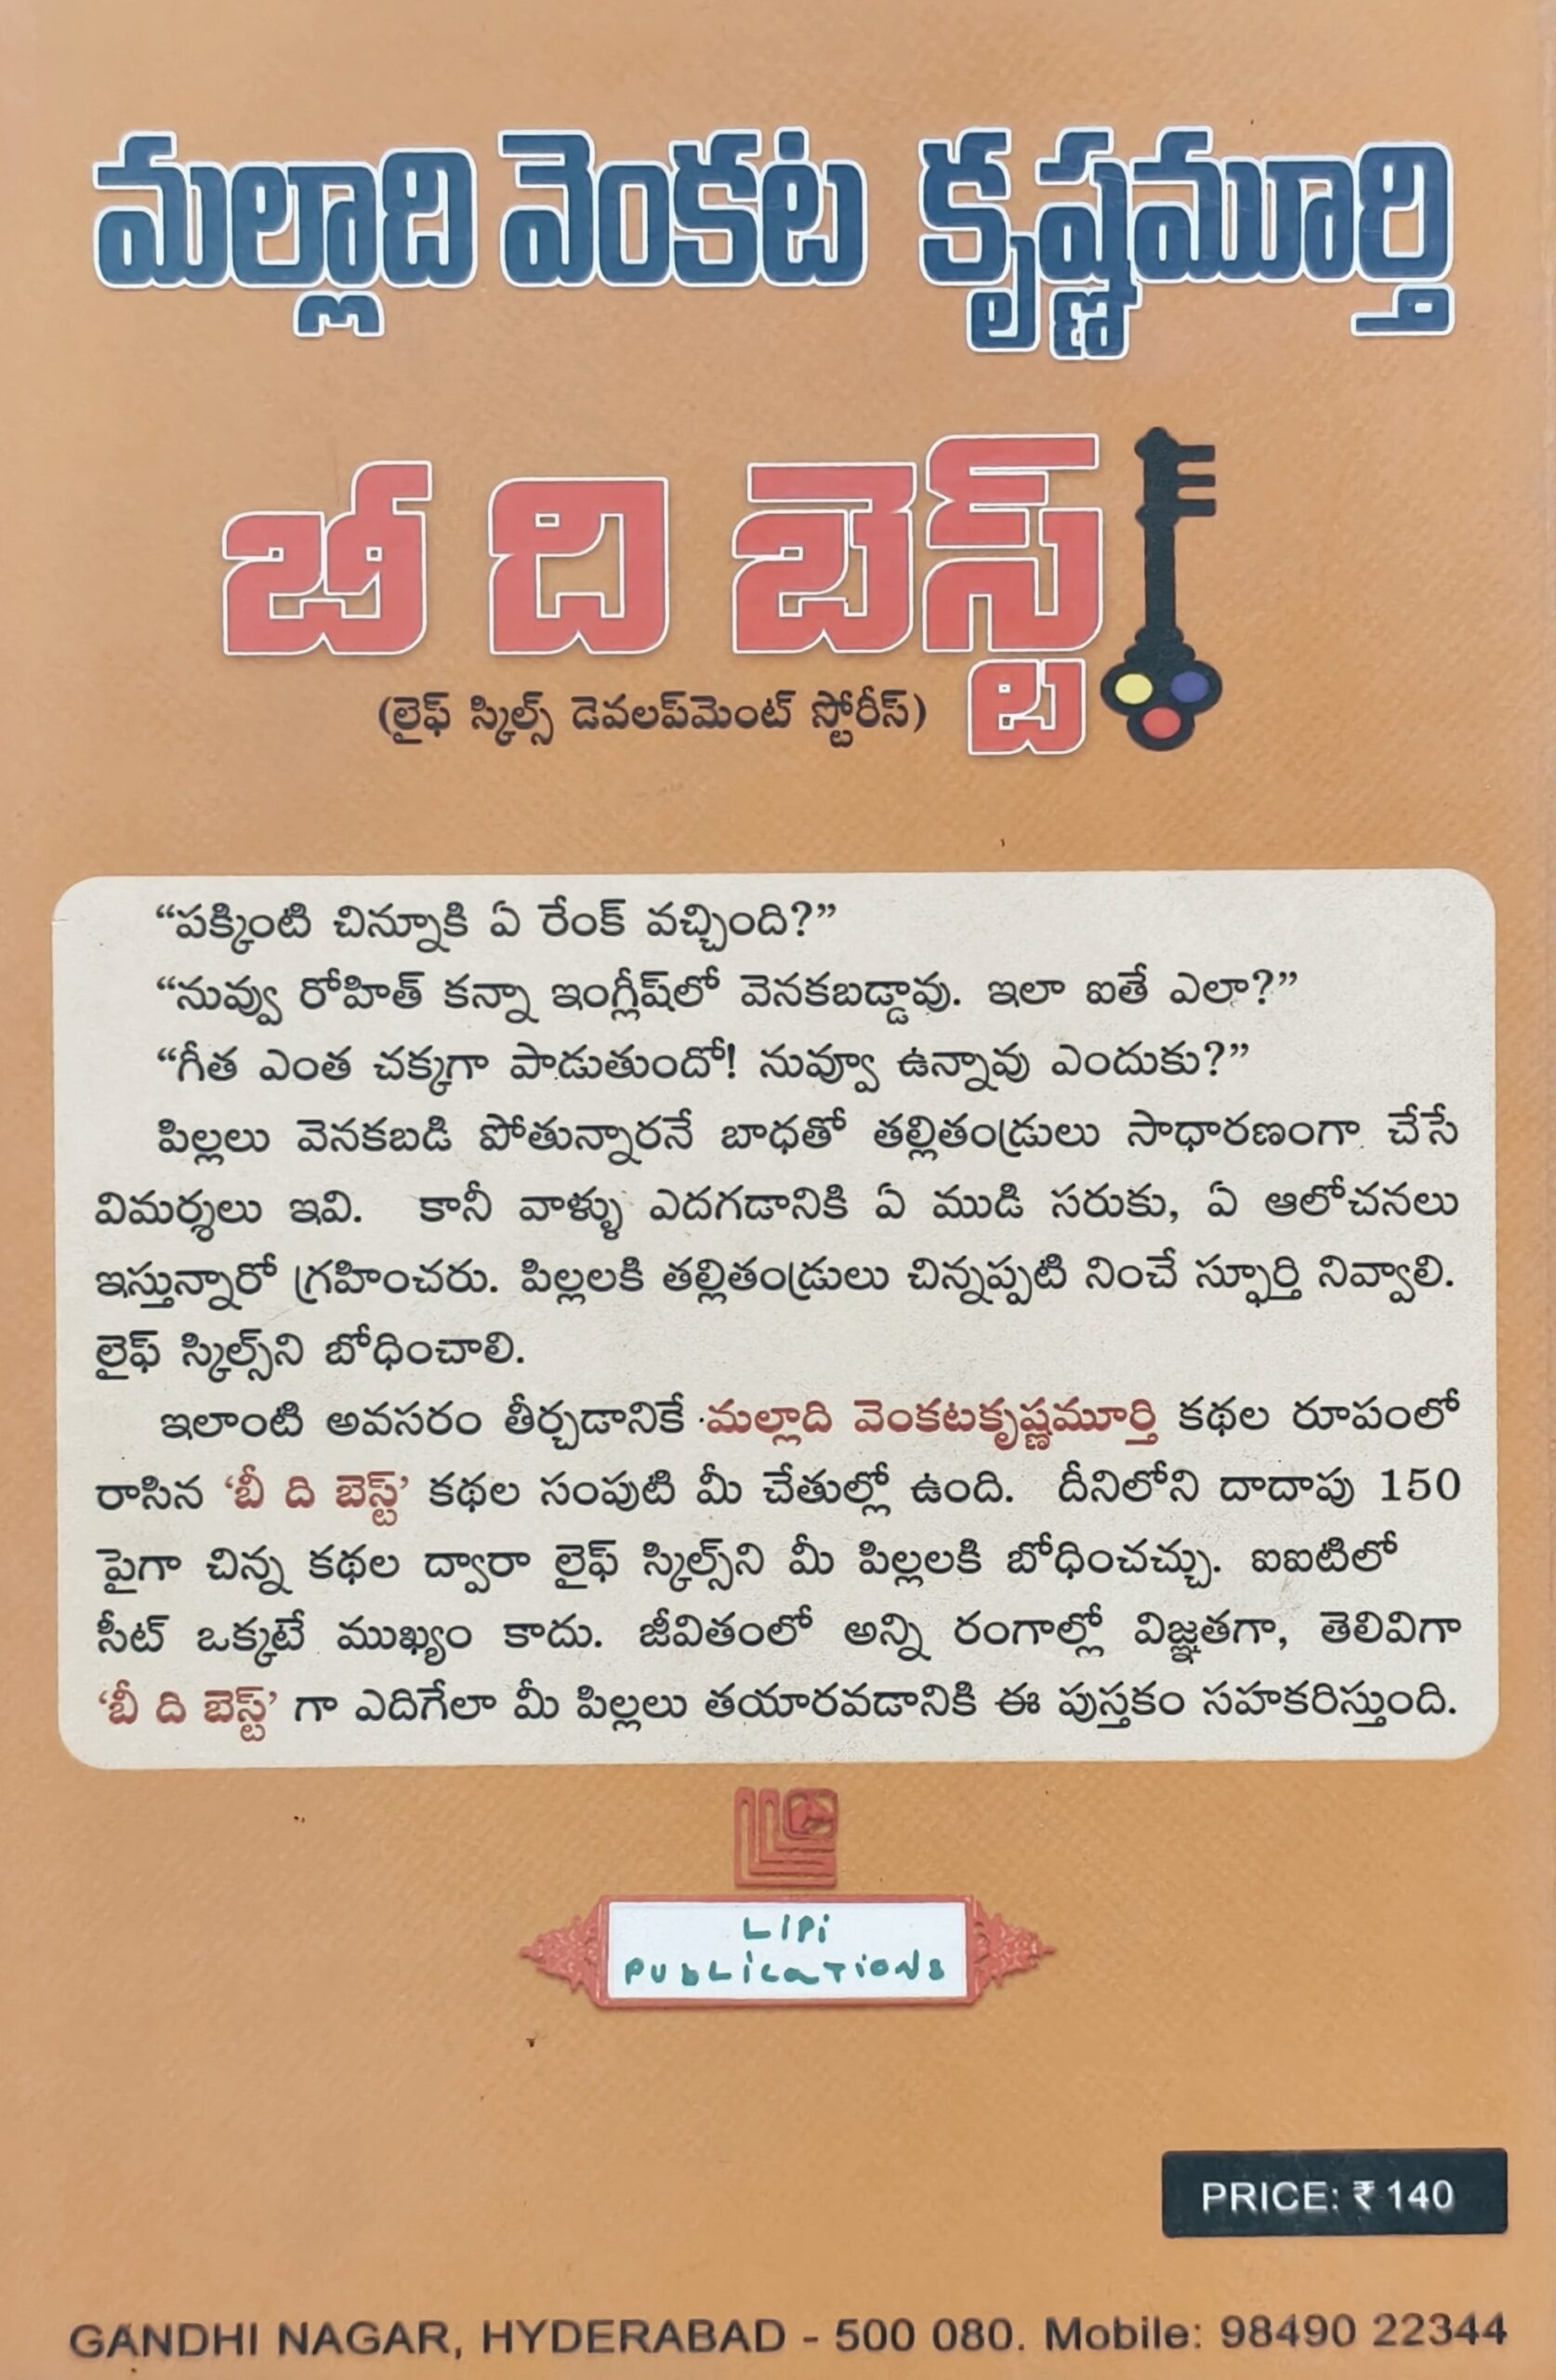 మల్లాది వెంకట కృష్ణమూర్తి
బీ ది బెస్ట్
(లైఫ్ స్కిల్స్ డెవలప్‌మెంట్ స్టోరీస్)
“పక్కింటి చిన్నూకి ఏ రేంక్ వచ్చింది?”
“నువ్వు రోహిత్ కన్నా ఇంగ్లీష్‌లో వెనకబడ్డావు. ఇలా ఐతే ఎలా?”
“గీత ఎంత చక్కగా పాడుతుందో! నువ్వూ ఉన్నావు ఎందుకు?”
పిల్లలు వెనకబడి పోతున్నారనే బాధతో తల్లితండ్రులు సాధారణంగా చేసే
విమర్శలు ఇవి. కానీ వాళ్ళు ఎదగడానికి ఏ ముడి సరుకు, ఏ ఆలోచనలు
ఇస్తున్నారో గ్రహించరు. పిల్లలకి తల్లితండ్రులు చిన్నప్పటి నించే స్ఫూర్తి నివ్వాలి.
లైఫ్ స్కిల్స్‌ని బోధించాలి.
ఇలాంటి అవసరం తీర్చడానికే మల్లాది వెంకటకృష్ణమూర్తి కథల రూపంలో
రాసిన ‘బీ ది బెస్ట్’ కథల సంపుటి మీ చేతుల్లో ఉంది. దీనిలోని దాదాపు 150
పైగా చిన్న కథల ద్వారా లైఫ్ స్కిల్స్‌ని మీ పిల్లలకి బోధించచ్చు. ఐఐటిలో
సీట్ ఒక్కటే ముఖ్యం కాదు. జీవితంలో అన్ని రంగాల్లో విజ్ఞతగా, తెలివిగా
‘బీ ది బెస్ట్’ గా ఎదిగేలా మీ పిల్లలు తయారవడానికి ఈ పుస్తకం సహకరిస్తుంది.
LIPi
PUBLICATIONS
PRICE: ₹ 140
GANDHI NAGAR, HYDERABAD - 500 080. Mobile: 98490 22344